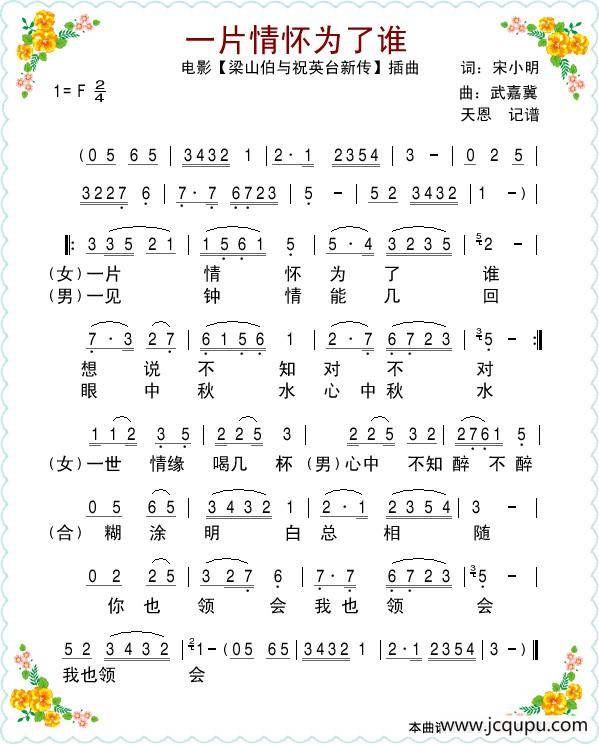 一片情怀为了谁
电影【梁山伯与祝英台新传】插曲 词：宋小明
1=F 2/4 曲：武嘉冀
天恩 记谱
(0 5 6 5 | 3 4 3 2 1 | 2 · 1 2 3 5 4 | 3 - | 0 2 5 |
3 2 2 7 6 | 7 · 7 6 7 2 3 | 5 - | 5 2 3 4 3 2 | 1 - ) |
|: 3 3 5 2 1 | 1 5 6 1 5 | 5 · 4 3 2 3 5 | 5 2 - |
(女) 一片 情 怀 为 了 谁
(男) 一见 钟 情 能 几 回
7 · 3 2 7 | 6 1 5 6 1 | 2 · 7 6 7 2 3 | 3 5 - :|
想 说 不 知 对 不 对
眼 中 秋 水 心 中 秋 水
1 1 2 3 5 | 2 2 5 3 | 2 2 5 3 2 | 2 7 6 1 5 |
(女) 一世 情缘 喝几 杯 (男) 心中 不知 醉 不 醉
0 5 6 5 | 3 4 3 2 1 | 2 · 1 2 3 5 4 | 3 - |
(合) 糊 涂 明 白 总 相 随
0 2 2 5 | 3 2 7 6 | 7 · 7 6 7 2 3 | 3 5 - |
你 也 领 会 我 也 领 会
5 2 3 4 3 2 | 2 1 - (0 5 6 5 | 3 4 3 2 1 | 2 · 1 2 3 5 4 | 3 - ) ||
我也 领 会
本曲谱 www.jcqupu.com